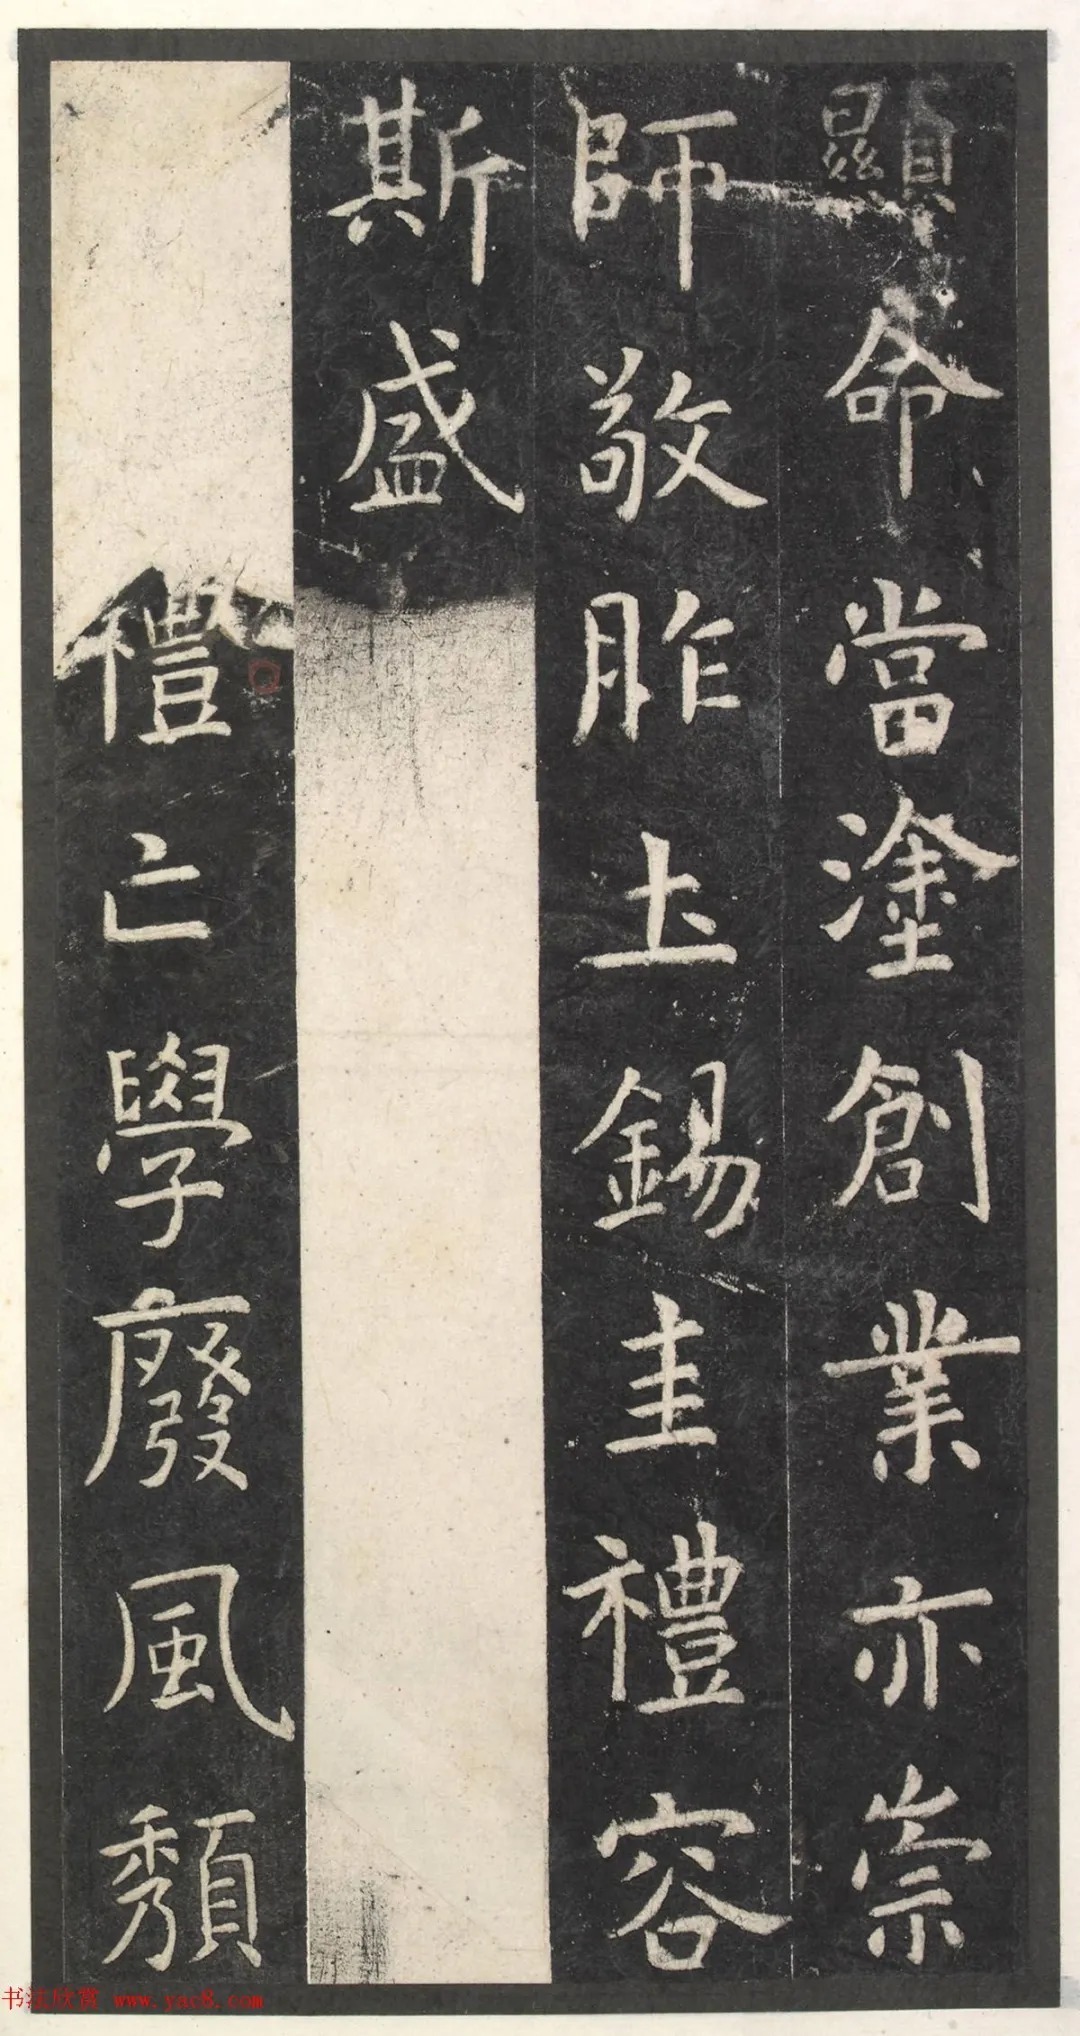 顯命當塗創業亦崇
師敬胙圡錫圭禮容
斯盛
禮亡學廢風頽
书法欣赏 www.yac8.com